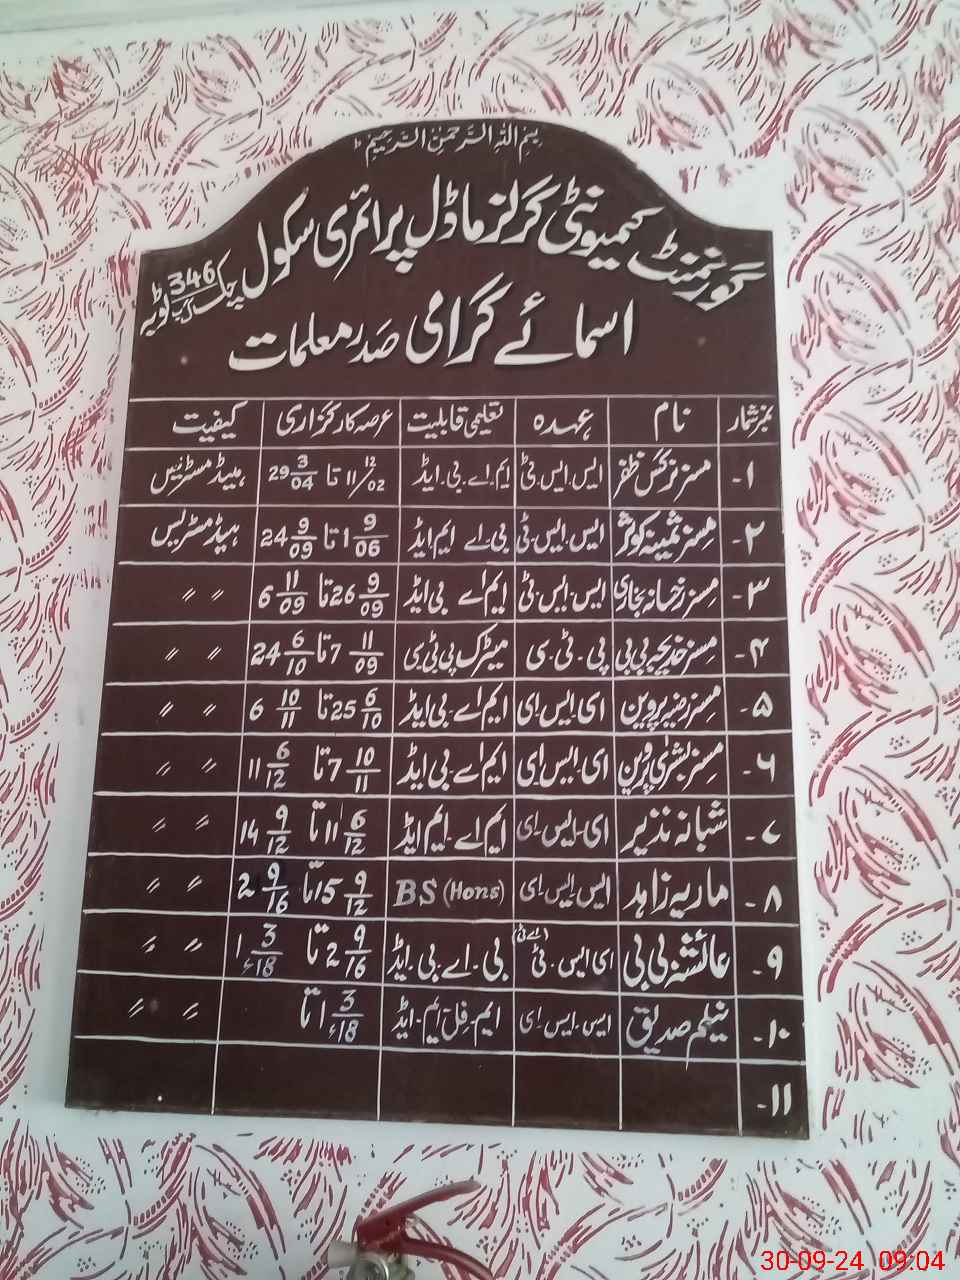 بسم اللہ الرحمن الرحیم
گورنمنٹ کمیونٹی گرلز ماڈل پرائمری سکول چک 346 ٹوبہ
اسمائے کرامی صدر معلمات
نمبر شمار نام عہدہ تعلیمی قابلیت عرصہ کارکزاری کیفیت
۱- مسز نرگس ظفر ایس.ایس.ٹی ایم.اے.بی.ایڈ 11/12/02 تا 29 3/04 ہیڈ مسٹریس
۲- مسز ثمینہ کوثر ایس.ایس.ٹی بی.اے ایم ایڈ 1 9/06 تا 24 9/09 ہیڈ مسٹریس
۳- مسز رخسانہ بخاری ایس.ایس.ٹی ایم اے بی ایڈ 26 9/09 تا 6 11/09 〃 〃
۴- مسز خدیجہ بی بی پی.ٹی.سی میٹرک پی ٹی سی 7 11/09 تا 24 6/10 〃 〃
۵- مسز پروین ای ایس ای ایم اے بی ایڈ 25 6/10 تا 6 10/11 〃 〃
۶- مسز بشریٰ پروین ای ایس ای ایم اے بی ایڈ 7 10/11 تا 11 6/12 〃 〃
۷- شبانہ نذیر ای.ایس.ای ایم اے.ایم ایڈ 11 6/12 تا 14 9/12 〃 〃
۸- ماریہ زاہد ایس ایس ای BS (Hons) 15 9/12 تا 2 9/16 〃 〃
۹- عائشہ بی بی ای ایس.ٹی (اے ٹی) بی.اے.بی.ایڈ 2 9/16 تا 1 3/18ء 〃 〃
۱۰- نیلم صدیق ایس ایس ای ایم.فل.ایم.ایڈ 1 3/18ء تا 〃 〃
۱۱-
30-09-24 09:04